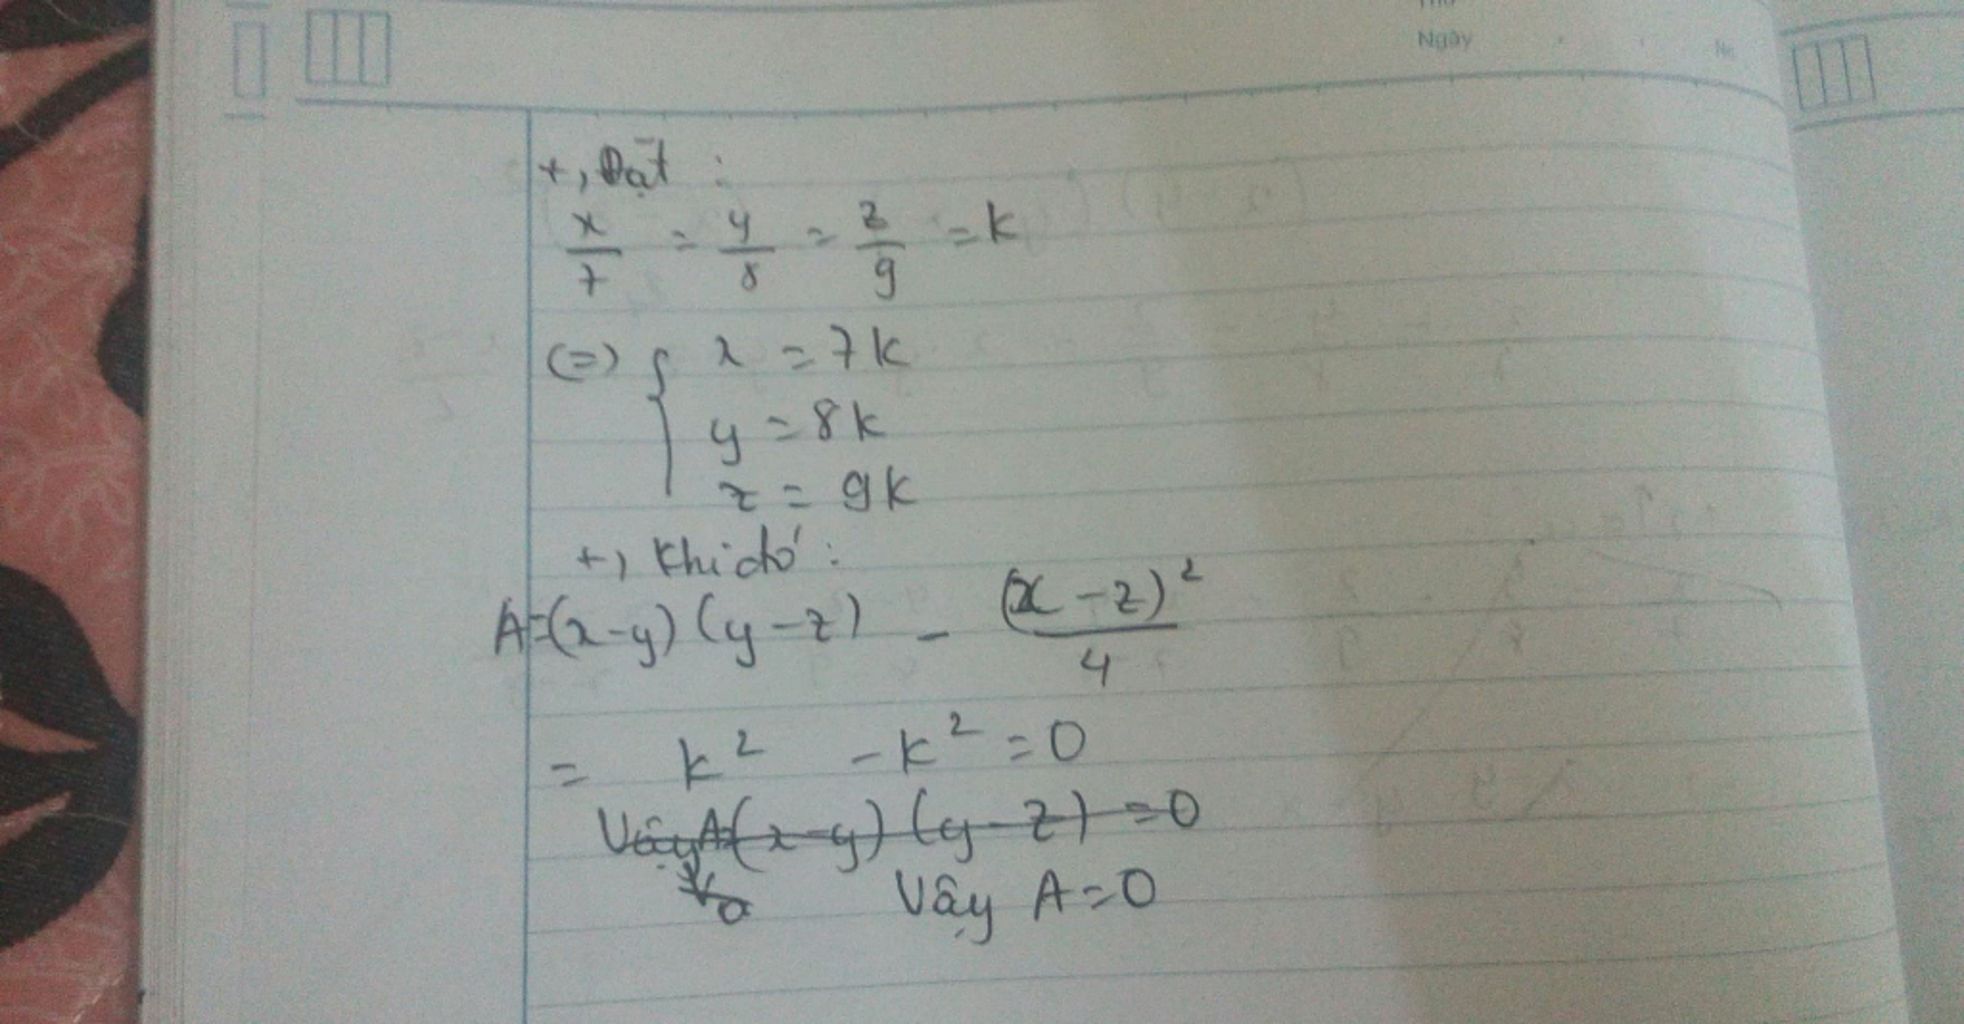 Ngày
+, Đặt :
x/7 = y/8 = z/9 = k
(=) { x = 7k
y = 8k
z = 9k
+, Khi đó :
A=(x-y)(y-z) - (x-z)²/4
= k² - k² = 0
Vậy A=(x-y)(y-z) = 0
Vậy A=0